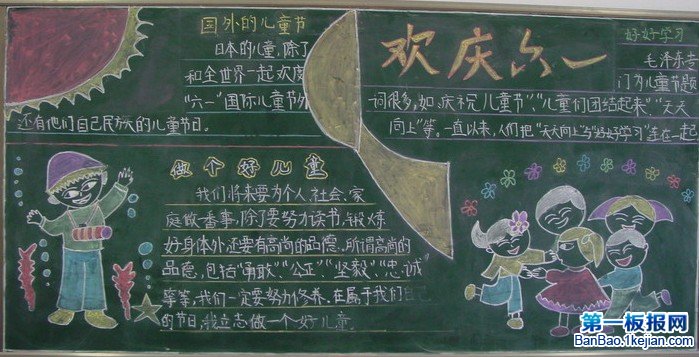 国外的儿童节
日本的儿童,除了
和全世界一起欢度
“六一”国际儿童节外
还有他们自己民族的儿童节日。
欢庆六一
好好学习
毛泽东专
门为儿童节题
词很多,如:庆祝儿童节”“儿童们团结起来”“天天
向上”等。一直以来,人们把“天天向上”与“好好学习”连在一起
做个好儿童
我们将来要为个人、社会、家
庭做番事,除了要努力读书,锻炼
好身体外还要有高尚的品德。所谓高尚的
品德,包括“勇敢”“公正”“坚毅”“忠诚”
等等,我们一定要努力修养。在属于我们自己
的节日,我立志做一个好儿童。
第一板报网
BanBao.1kejian.com